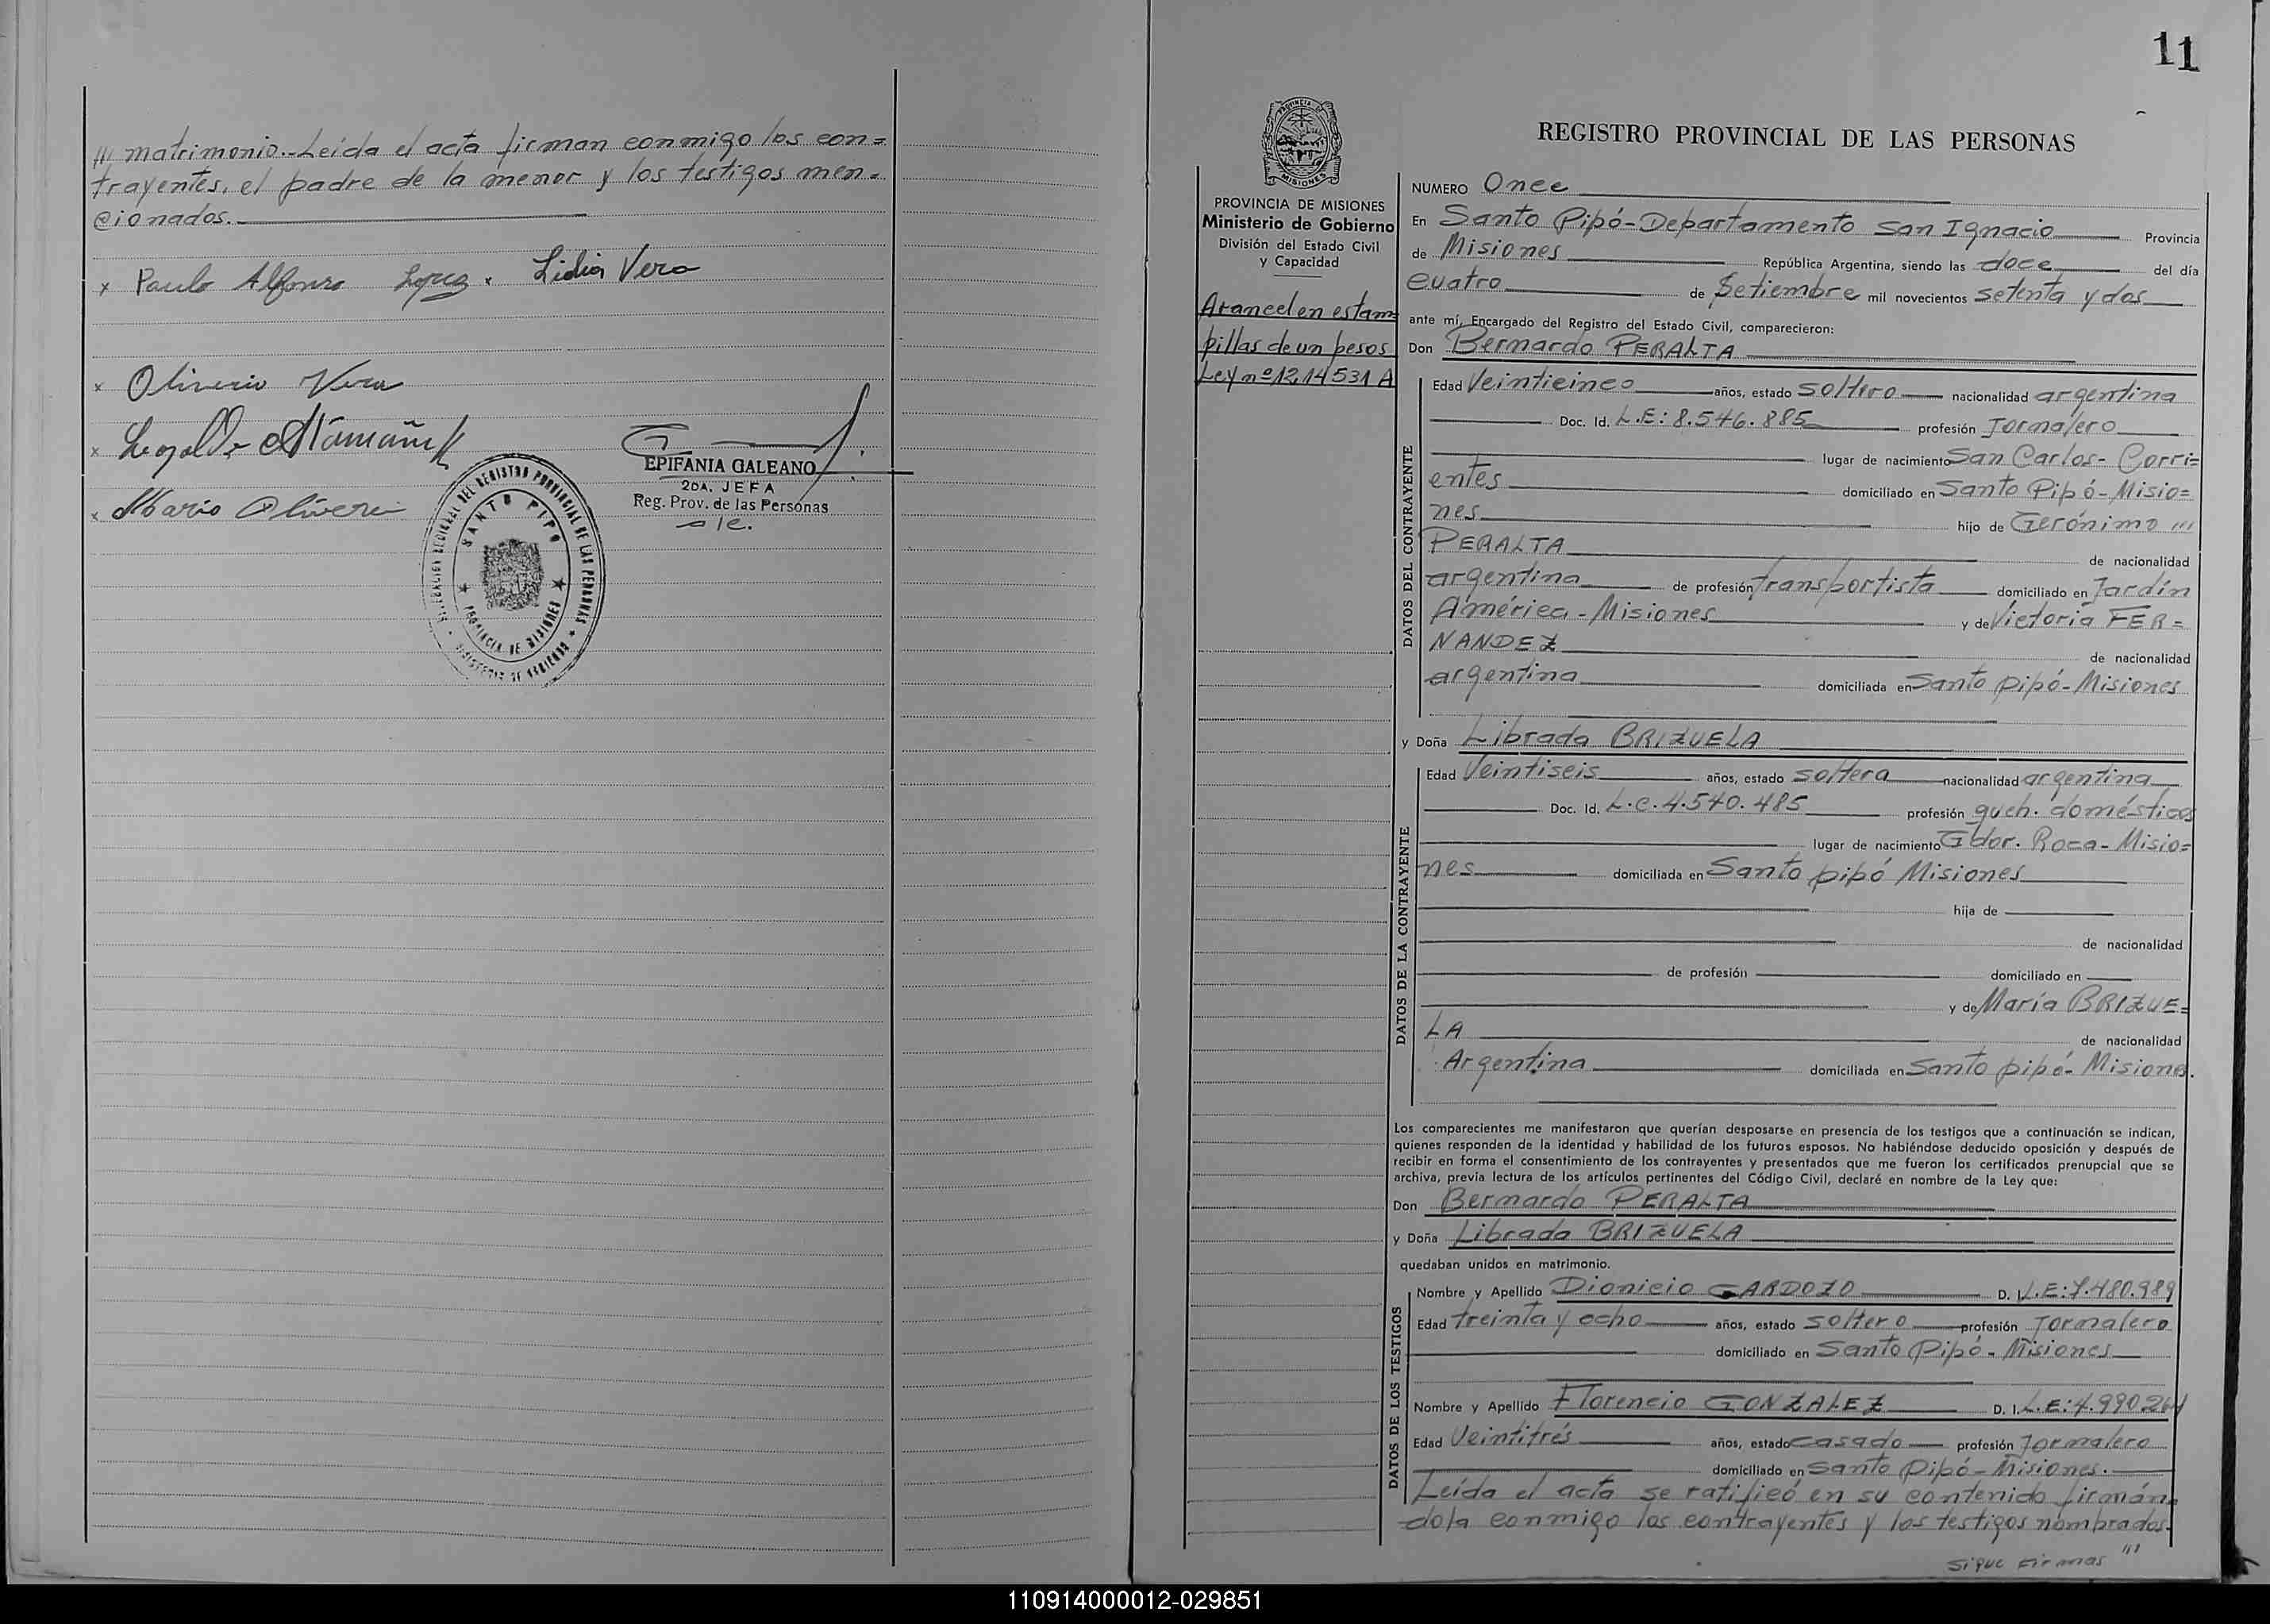 /// matrimonio.-Leída el acta firman conmigo los con=
trayentes, el padre de la menor y los testigos men=
cionados.
x Paulo Alfonso Lopez. Lidia Vera
x Oliverio Vera
x
x Mario Olivera
EPIFANIA GALEANO
2DA. JEFA
Reg. Prov. de las Personas
a/c.
DELEGACION SECCIONAL DEL REGISTRO PROVINCIAL DE LAS PERSONAS
SANTO PIPO
PROVINCIA DE MISIONES
MINISTERIO DE GOBIERNO
11
PROVINCIA DE
MISIONES
PROVINCIA DE MISIONES
Ministerio de Gobierno
División del Estado Civil
y Capacidad
Arancel en estam=
pillas de un pesos
Ley nº 12,14531 A
REGISTRO PROVINCIAL DE LAS PERSONAS
NUMERO Once
En Santo Pipó-Departamento San Ignacio Provincia
de Misiones República Argentina, siendo las doce del día
cuatro de Setiembre mil novecientos setenta y dos
ante mí, Encargado del Registro del Estado Civil, comparecieron:
Don Bernardo PERALTA
DATOS DEL CONTRAYENTE
Edad Veinticinco años, estado soltero nacionalidad argentina
Doc. Id. L.E: 8.546.885 profesión Jornalero
lugar de nacimiento San Carlos- Corri=
entes domiciliado en Santo Pipó-Misio=
nes hijo de Gerónimo ///
PERALTA de nacionalidad
argentina de profesión transportista domiciliado en Jardín
América-Misiones y de Victoria FER=
NANDEZ de nacionalidad
argentina domiciliada en Santo pipó-Misiones
y Doña Librada BRIZUELA
DATOS DE LA CONTRAYENTE
Edad Veintiseis años, estado soltera nacionalidad argentina
Doc. Id. L.C. 4.540.485 profesión queh. domésticos
lugar de nacimiento Gdor. Roca- Misio=
nes domiciliada en Santo pipó Misiones
hija de
de nacionalidad
de profesión domiciliado en
y de María BRIZUE=
LA de nacionalidad
Argentina domiciliada en Santo pipó- Misiones.
Los comparecientes me manifestaron que querían desposarse en presencia de los testigos que a continuación se indican,
quienes responden de la identidad y habilidad de los futuros esposos. No habiéndose deducido oposición y después de
recibir en forma el consentimiento de los contrayentes y presentados que me fueron los certificados prenupcial que se
archiva, previa lectura de los artículos pertinentes del Código Civil, declaré en nombre de la Ley que:
Don Bernardo PERALTA
y Doña Librada BRIZUELA
quedaban unidos en matrimonio.
DATOS DE LOS TESTIGOS
Nombre y Apellido Dionicio CARDOZO D. I. L.E: 7.480.989
Edad treinta y ocho años, estado soltero profesión Jornalero
domiciliado en Santo Pipó- Misiones
Nombre y Apellido Florencio GONZALEZ D. I. L.E:
Edad Veintitrés años, estado casado profesión Jornalero
domiciliado en Santo Pipó-Misiones.
Leída el acta se ratificó en su contenido firmán=
dola conmigo los contrayentes y los testigos nombrados.
sigue firmas ///
110914000012-029851